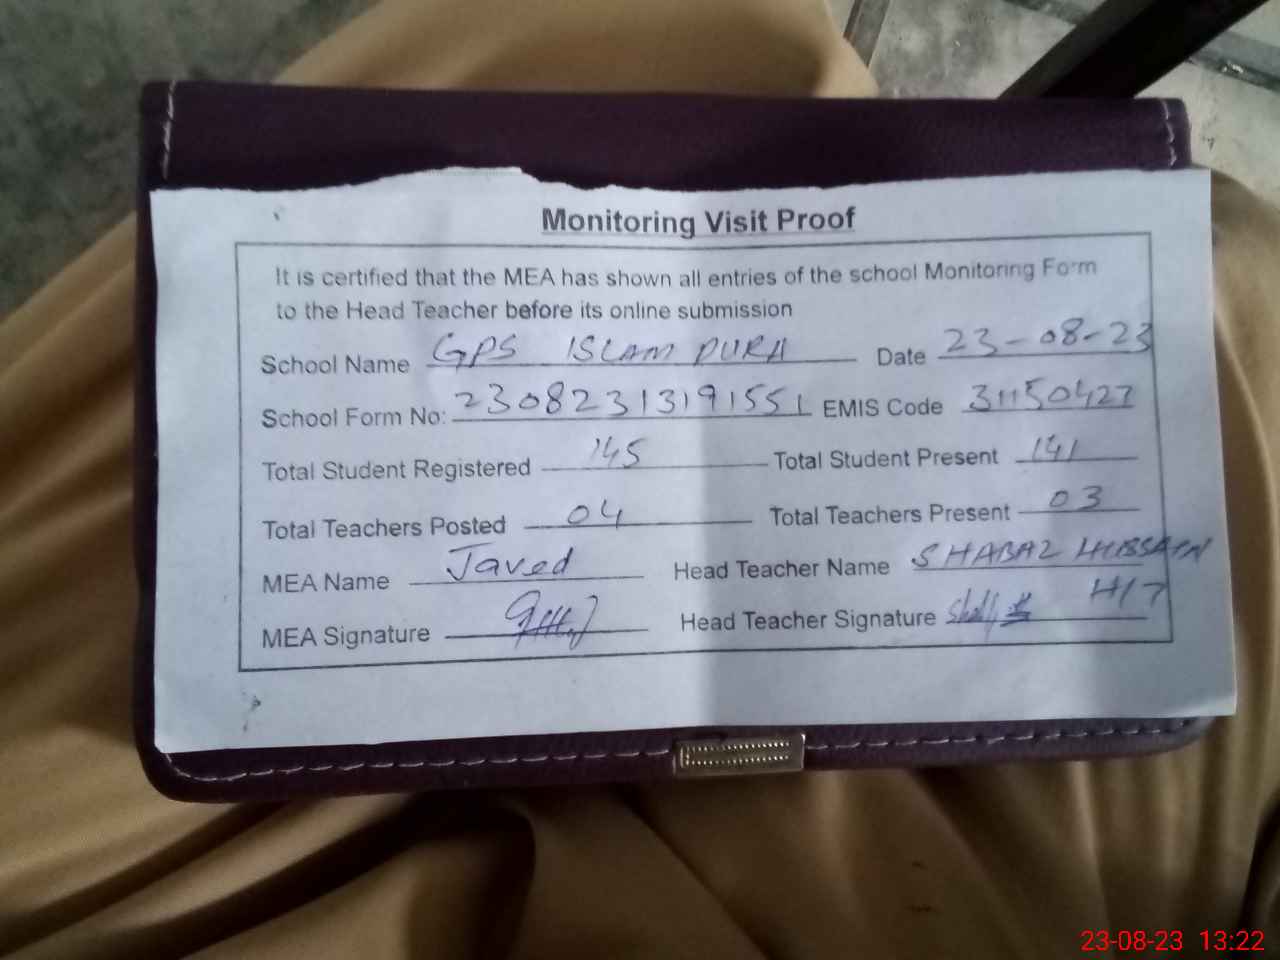 Monitoring Visit Proof
It is certified that the MEA has shown all entries of the school Monitoring Form
to the Head Teacher before its online submission
School Name GPS ISLAM PURA Date 23-08-23
School Form No: 23082313191551 EMIS Code 31150427
Total Student Registered 145 Total Student Present 141
Total Teachers Posted 04 Total Teachers Present 03
MEA Name Javed Head Teacher Name SHABAZ HUSSAIN
MEA Signature Head Teacher Signature H/T
23-08-23 13:22